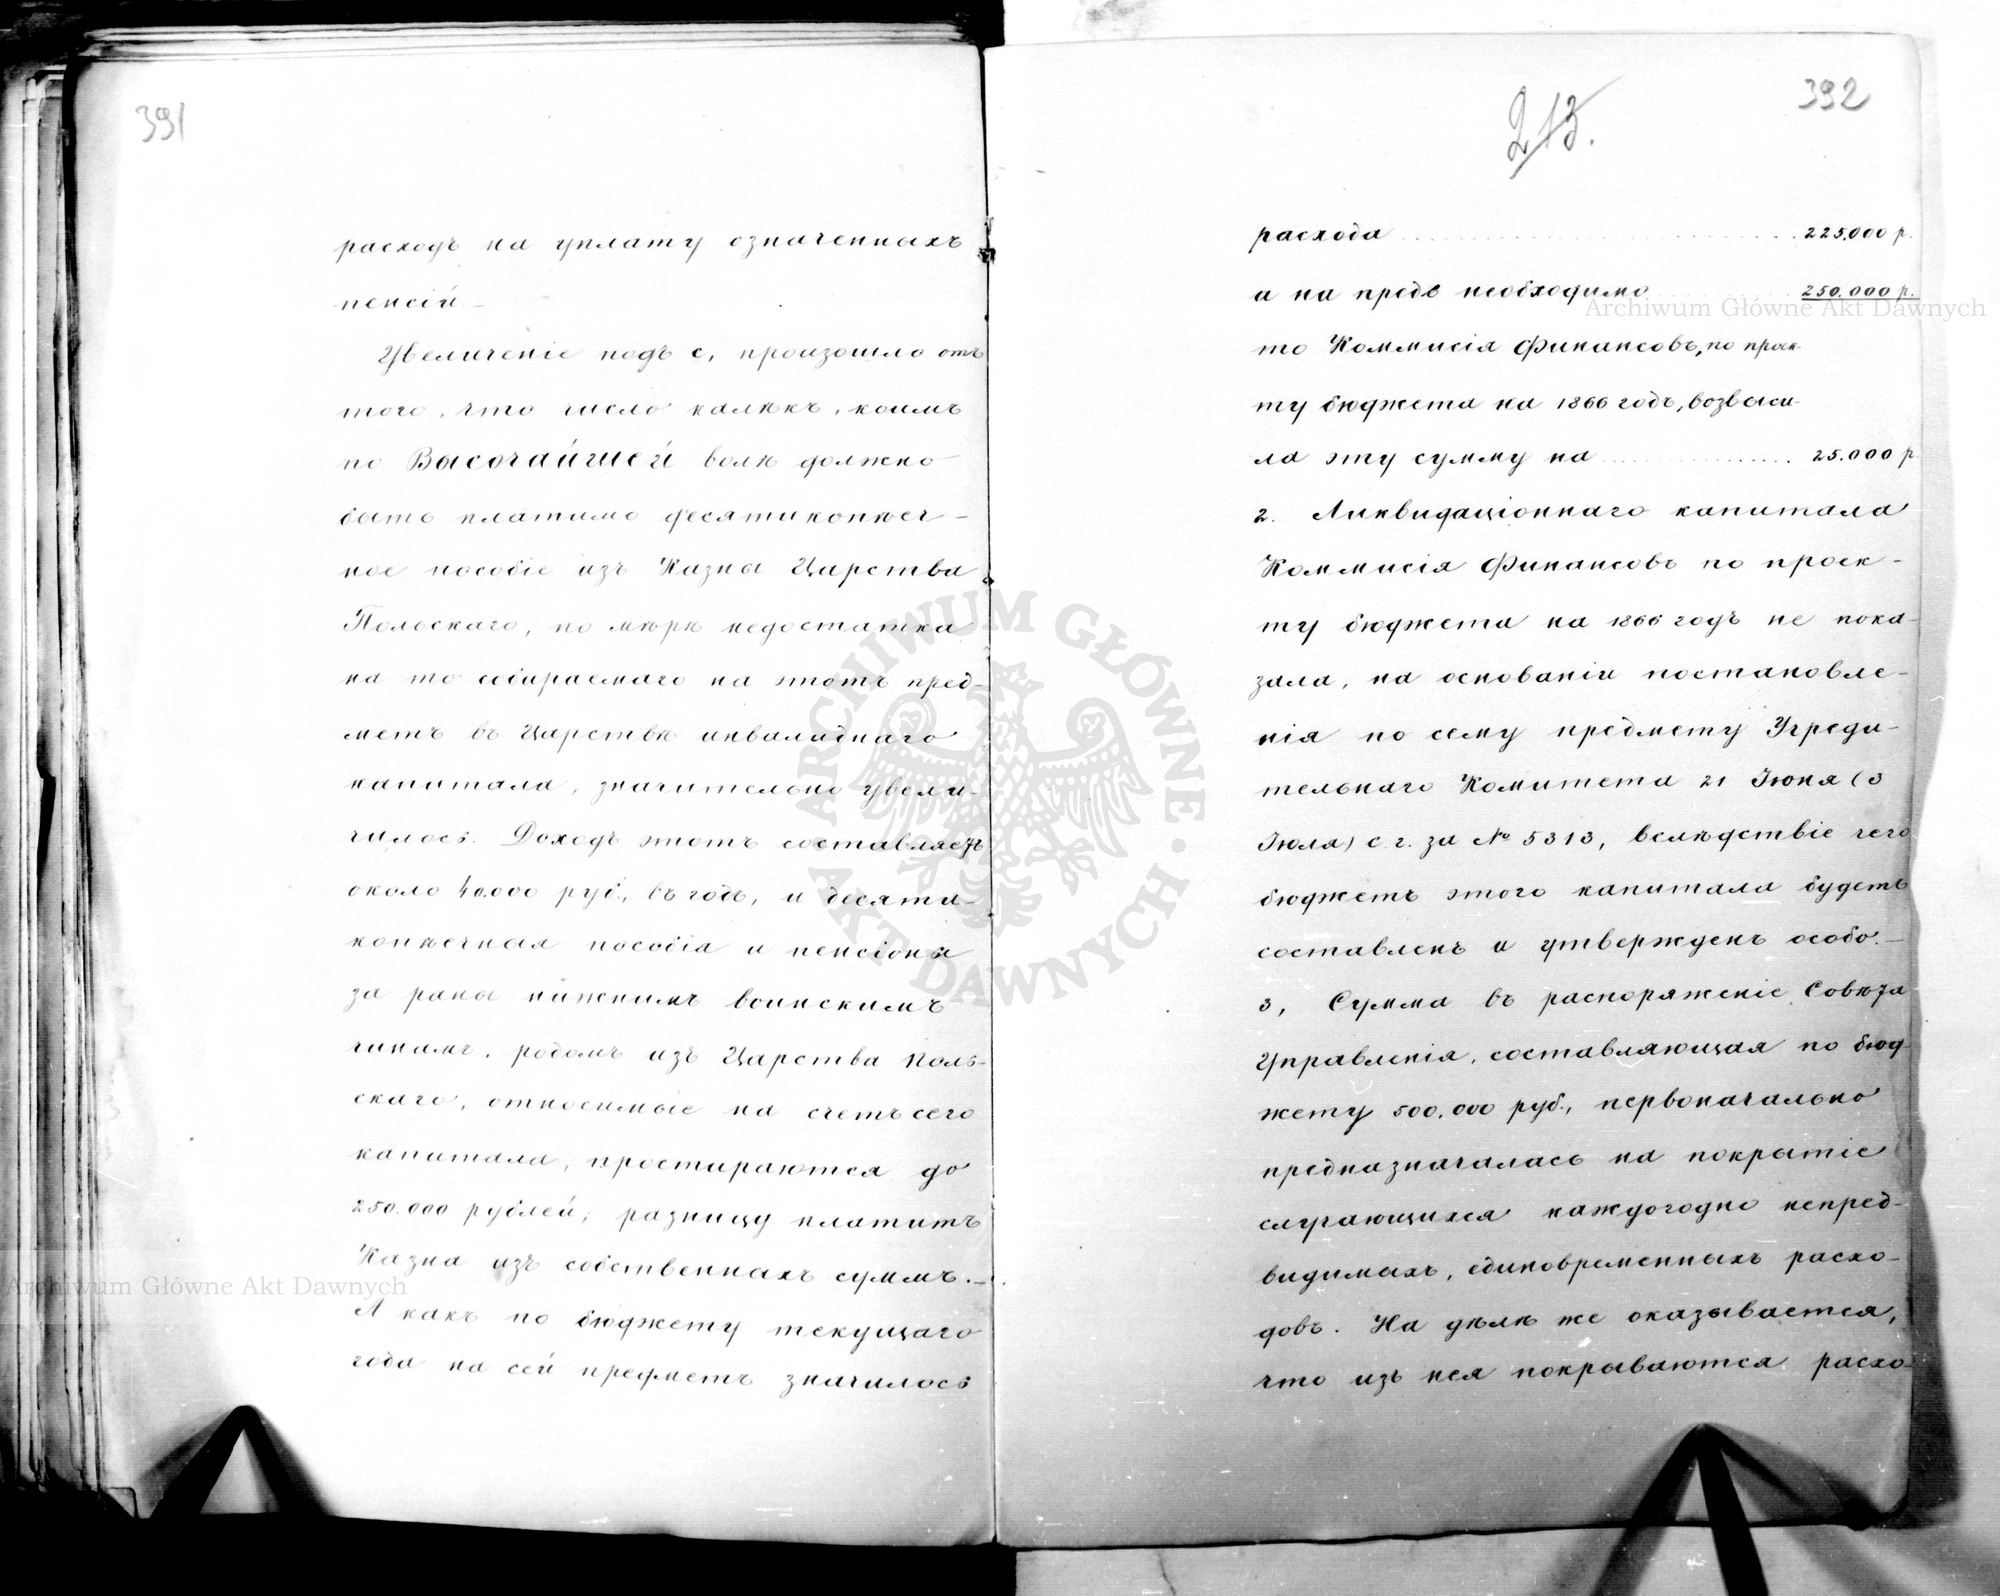 391
расходъ на уплату означенныхъ
пенсій.—
Увеличеніе подъ с, произошло отъ
того, что число калѣкъ, коимъ
по Высочайшей волѣ должно
быть платимо десятикопѣеч-
ное пособіе изъ Казны Царства
Польскаго, по мѣрѣ недостатка
на то собираемаго на этотъ пред-
метъ въ Царствѣ инвалиднаго
капитала, значительно увели-
чилось. Доходъ этотъ составляетъ
около 40.000 руб., въ годъ, и десяти-
копѣечная пособія и пенсіоны
за раны нижнимъ воинскимъ
чинамъ, родомъ изъ Царства Поль-
скаго, относимые на счетъ сего
капитала, простираются до
250.000 рублей; разницу платитъ
Казна изъ собственныхъ суммъ.—
А какъ по бюджету текущаго
года на сей предметъ значилось
392
213.
расхода . . . . . . . . . . 225.000 р.
а на предь необходимо 250.000 р.
то Коммисія Финансовъ, по проек
ту бюджета на 1866 годъ, возвыси-
ла эту сумму на . . . . . . . 25.000 р
2. Ликвидаціоннаго капитала
Коммисія Финансовъ по проек-
ту бюджета на 1866 годъ не пока-
зала, на основаніи постановле-
нія по сему предмету Учреди-
тельнаго Комитета 21 Іюня (3
Іюля) с. г. за № 5313, вслѣдствіе чего
бюджетъ этого капитала будетъ
составленъ и утвержденъ особо.—
3, Сумма въ распоряженіе Совѣта
Управленія, составляющая по бюд-
жету 500.000 руб., первоначально
предназначалась на покрытіе
случающихся каждогодно непред-
видимыхъ, единовременныхъ расхо-
довъ. На дѣлѣ же оказывается,
что изъ нея покрываются расхо-
Archiwum Główne Akt Dawnych
Archiwum Główne Akt Dawnych
ARCHIWUM GŁÓWNE AKT DAWNYCH